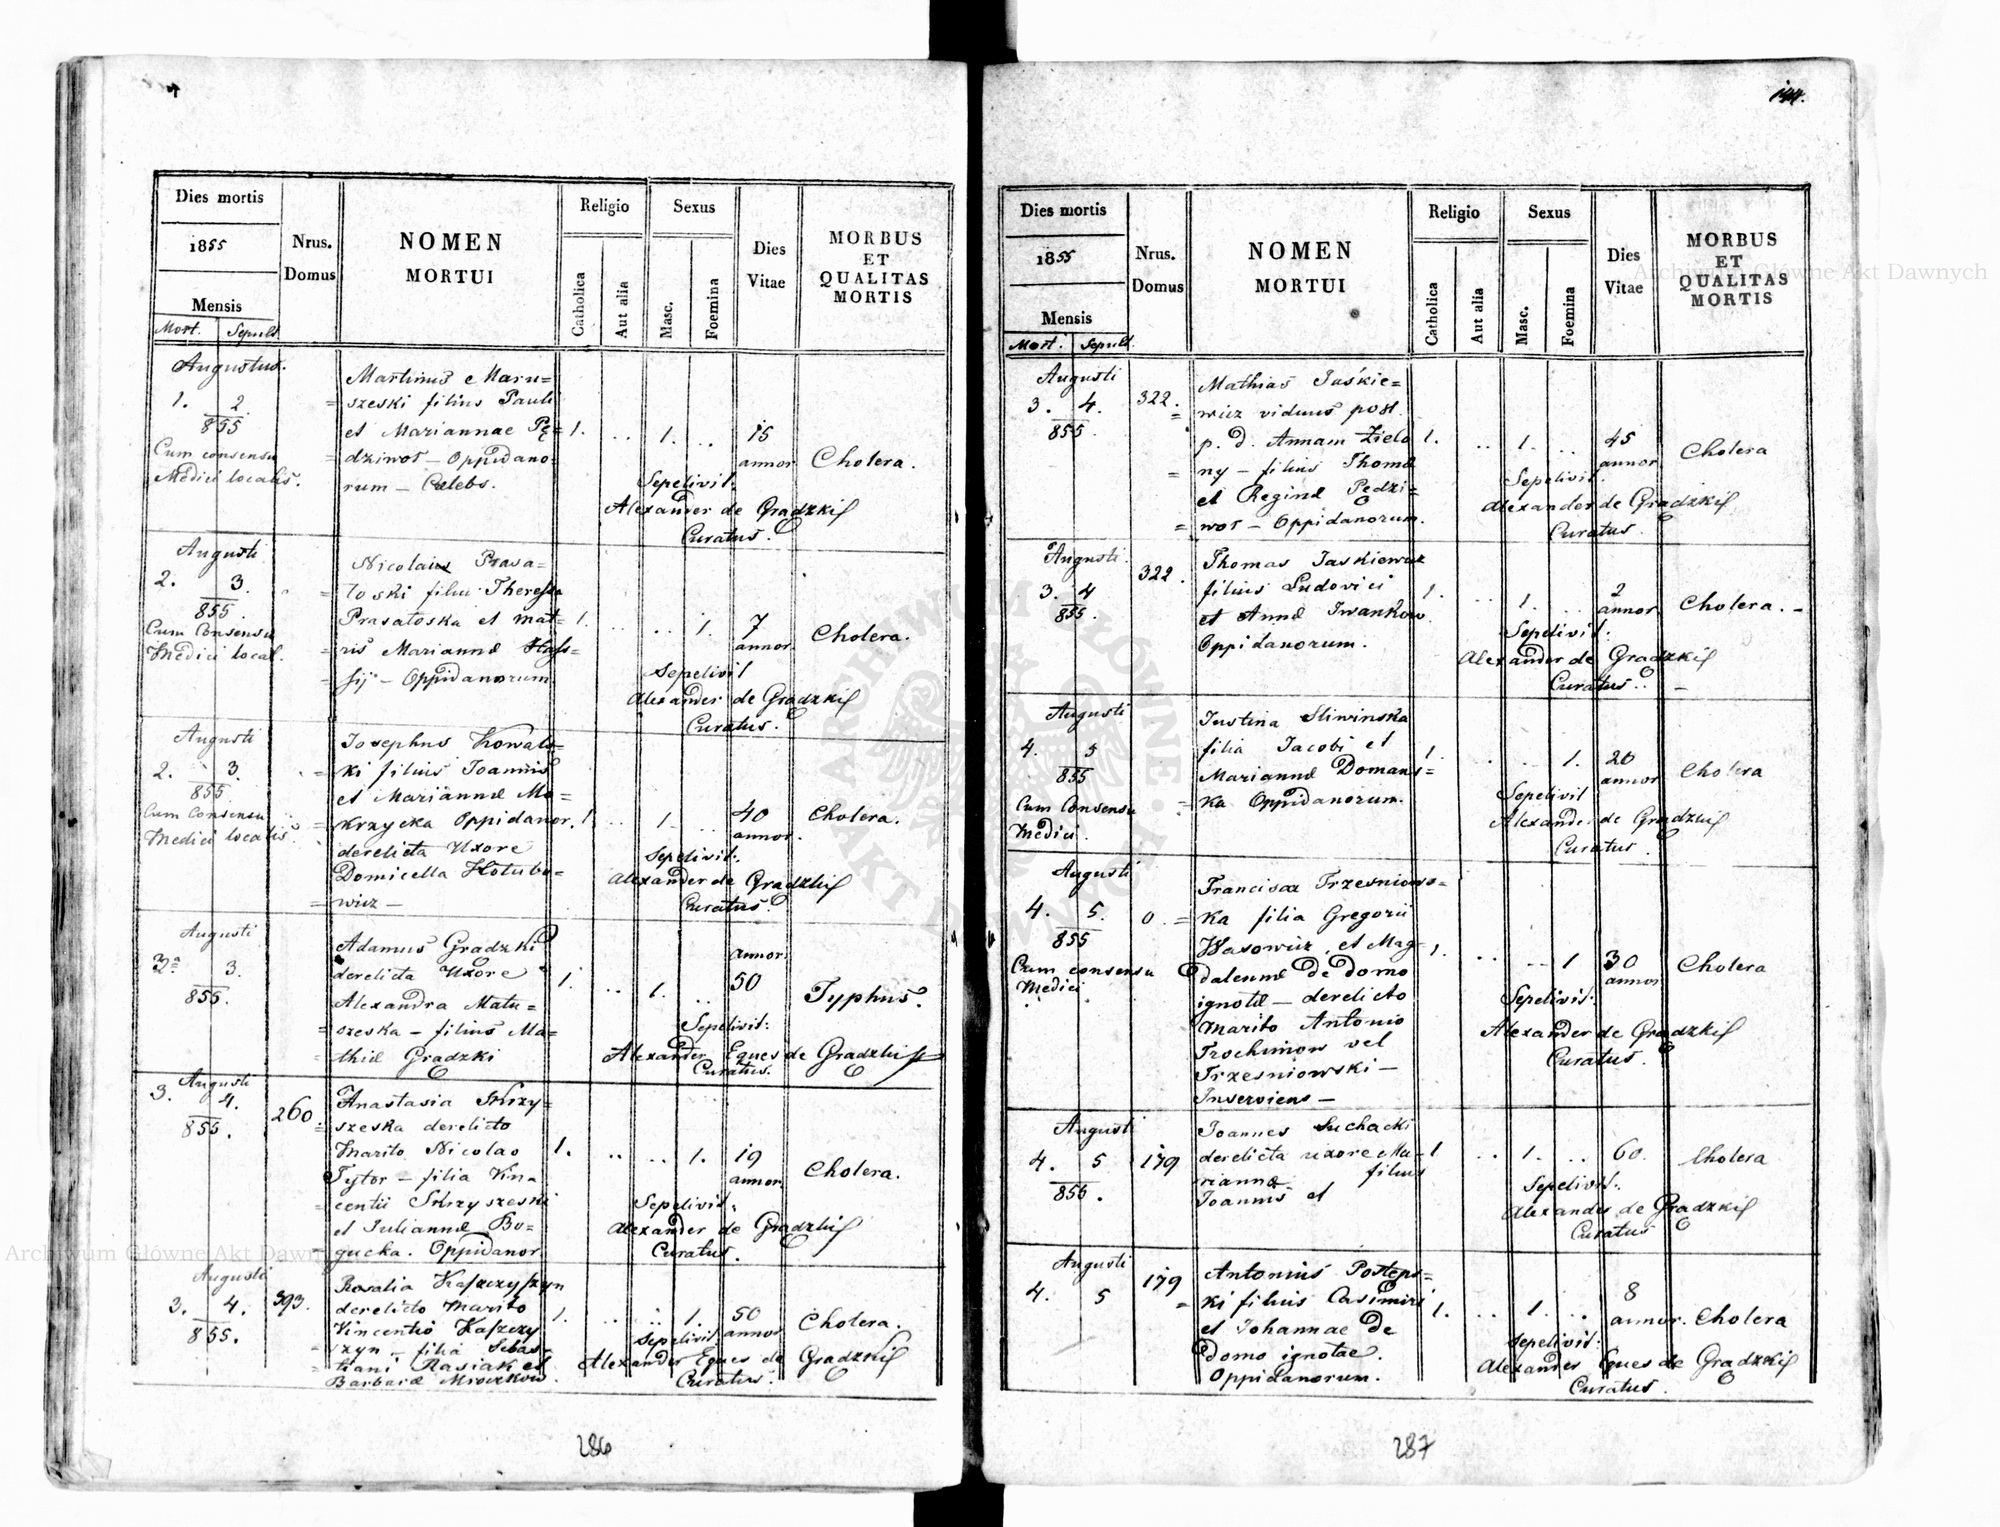 144.
Dies mortis
1855
Mensis
Mort. Sepult.
Nrus.
Domus
NOMEN
MORTUI
Religio
Catholica
Aut alia
Sexus
Masc.
Foemina
Dies
Vitae
MORBUS
ET
QUALITAS
MORTIS
Augustus.
1. 2
855
Cum consensu
Medici localis.
Martinus Maru=
szeski filius Pauli
et Mariannae Pę=
dziwot – Oppidano=
rum – Caelebs.
1. .. 1. ..
15
annor
Cholera.
Sepelivit:
Alexander de Gradzki
Curatus.
Augusti
2. 3.
855.
Cum Consensu
Medici local.
Nicolaus Prasa=
toski filiu Theressa
Prasatoska et mat=
ris Mariannæ
Oppidanorum
1. .. .. 1.
7
annor.
Cholera.
Sepelivit
Alexander de Gradzki
Curatus.
Augusti
2. 3.
855
Cum Consensu
Medici localis
Josephus Kowals=
ki filius Joannis
et Mariannæ Mo=
krzycka Oppidanor.
derelicta Uxore
Domicella Hotubo=
wicz –
1. .. 1. ..
40
annor.
Cholera.
Sepelivit:
Alexander de Gradzki
Curatus.
Augusti
3. 3.
855.
Adamus Gradzki
derelicta Uxore
Alexandra Matu=
szeska – filius Ma=
thiæ Gradzki
1. .. 1. ..
annor.
50
Typhus.
Sepelivit:
Alexander Eques de Gradzki
Curatus.
Augusti
3. 4.
855.
260.
Anastasia Skrzy=
szeska derelicto
Marito Nicolao
Tytor – filia Vin=
centii Skrzyszeski
et Juliannæ Bo=
gucka. Oppidanor
1. .. .. 1.
19
annor.
Cholera.
Sepelivit:
Alexander de Gradzki
Curatus.
Augusti
3. 4.
855.
393.
Rosalia Kaszczyszyn
derelicto Marito
Vincentio Kaszczy
szyn – filia Sebas=
tiani Rasiak et
Barbaræ Mroczkow.
1. .. .. 1.
50
annor
Cholera.
Sepelivit:
Alexander Eques de Gradzki
Curatus.
286
Dies mortis
1855
Mensis
Mort. Sepult.
Nrus.
Domus
NOMEN
MORTUI
Religio
Catholica
Aut alia
Sexus
Masc.
Foemina
Dies
Vitae
MORBUS
ET
QUALITAS
MORTIS
Augusti
3. 4.
855.
322.
Mathias Jaskie=
wicz viduus post
p. d. Annam Zielo
ny – filius Thomæ
et Reginæ Pędzi=
wot – Oppidanorum.
1. .. 1. ..
45
annor
Cholera
Sepelivit.
Alexander de Gradzki
Curatus.
Augusti
3. 4
855.
322.
Thomas Jaskiewicz
filius Ludovici
et Annæ Iwankow
Oppidanorum.
1. .. 1. ..
2
annor
Cholera. –
Sepelivit:
Alexander de Gradzki
Curatus.. –
Augusti
4. 5
855
Cum Consensu
Medici.
Justina Sliwinska
filia Jacobi et
Mariannæ Domans=
ka Oppidanorum.
1. . .. 1.
20
annor
Cholera
Sepelivit
Alexander de Gradzki
Curatus.
Augusti
4. 5.
855
Cum consensu
Medici
0.
Francisca Trzesniows=
ka filia Gregorii
Wasowicz et Mag=
dalenæ de domo
ignotæ – derelicto
Marito Antonio
Trochimow vel
Trzesniowski –
Inserviens –
1. .. .. 1
30
annor
Cholera
Sepelivit:
Alexander de Gradzki
Curatus.
Augusti
4. 5
855.
179
Joannes Suchacki
derelicta uxore Ma=
rianna filius
Joannis et
1 .. 1. ..
60.
Cholera
Sepelivit:
Alexander de Gradzki
Curatus
Augusti
4. 5
179
Antonius Postęps=
ki filius Casimiri
et Johannae de
domo ignotae.
Oppidanorum.
1. .. 1. ..
8
annor.
Cholera
Sepelivit:
Alexander Eques de Gradzki
Curatus.
287
Archiwum Główne Akt Dawnych
Archiwum Główne Akt Dawnych
ARCHIWUM GŁÓWNE AKT DAWNYCH